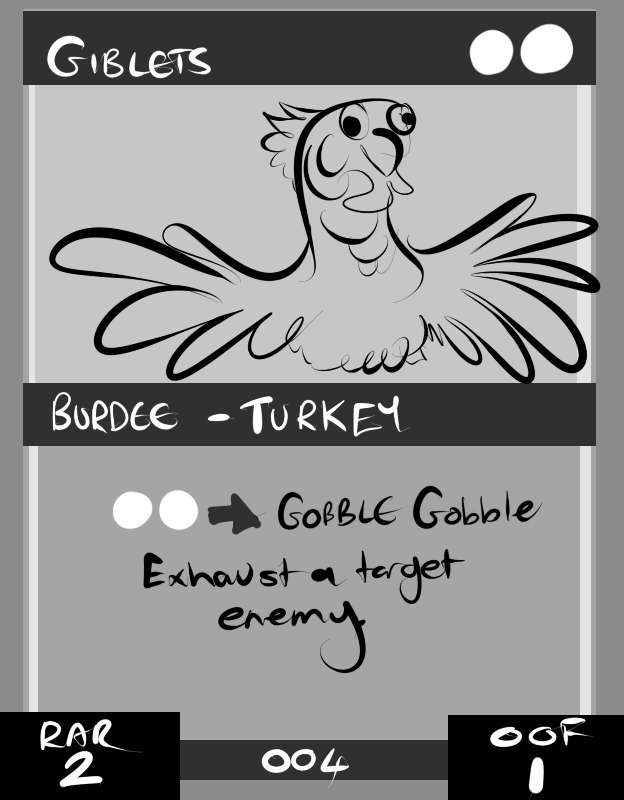 GIBLETS
BURDEE - TURKEY
GOBBLE Gobble
Exhaust a target
enemy.
RAR
2
004
OOF
1